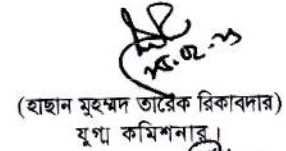 (হাছান মুহম্মদ তারেক রিকাবদার)
যুগ্ম কমিশনার।